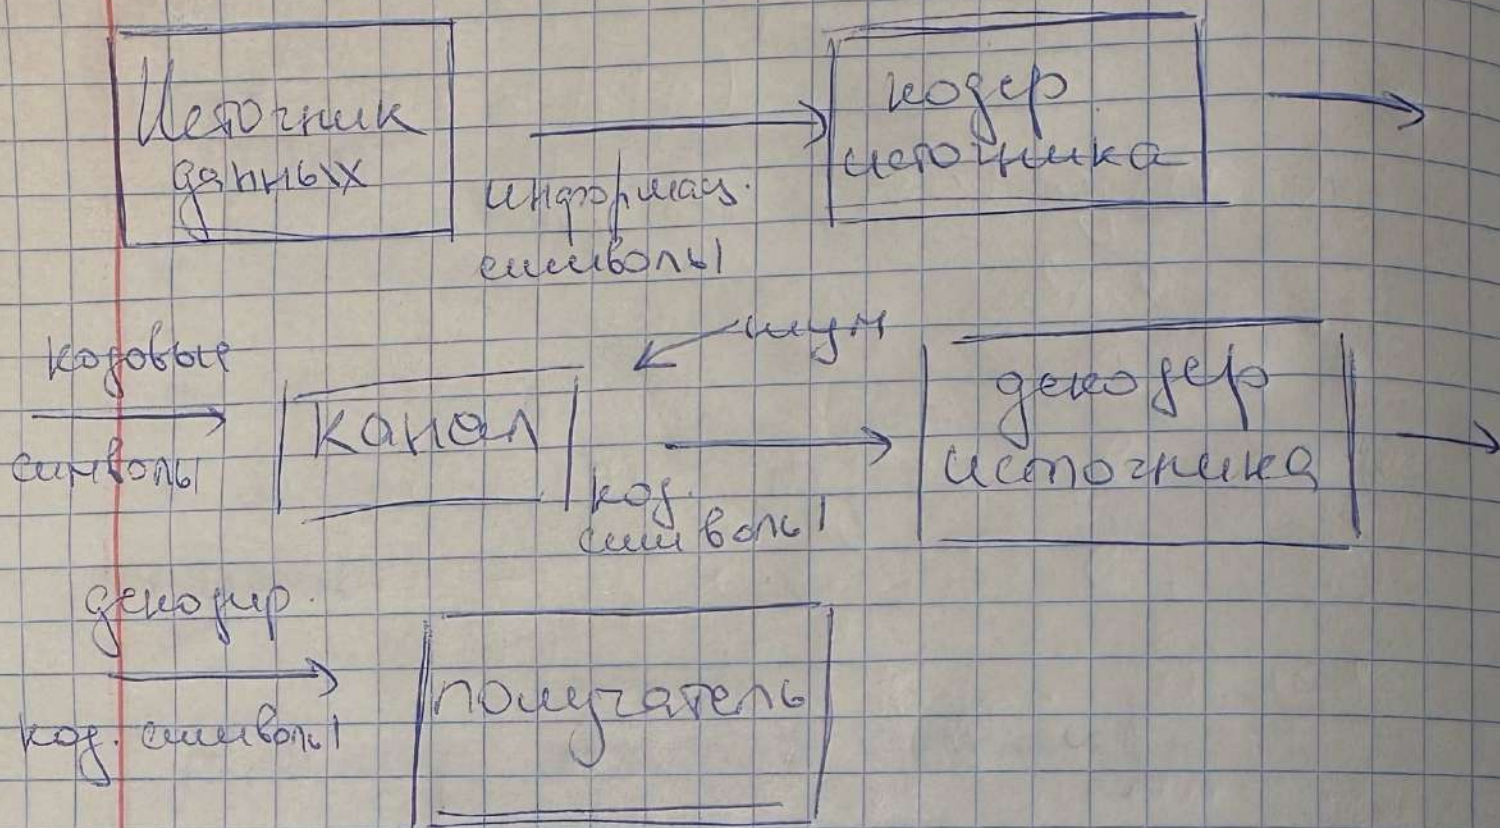 Источник
данных
информац.
символы
кодер
источника
кодовые
символы
канал
шум
код.
символы
декодер
источника
декодир.
код. символы
получатель